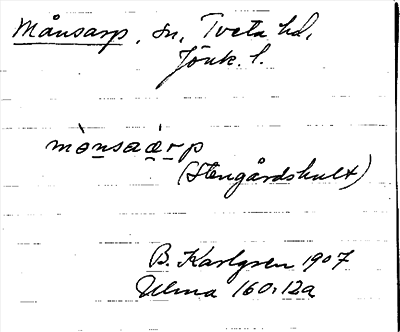 Månsarp, sn, Tveta hd,
Jönk. l.
mònsaár p
(Stengårdshult)
B. Karlgren 1907
Ulma 160:12a